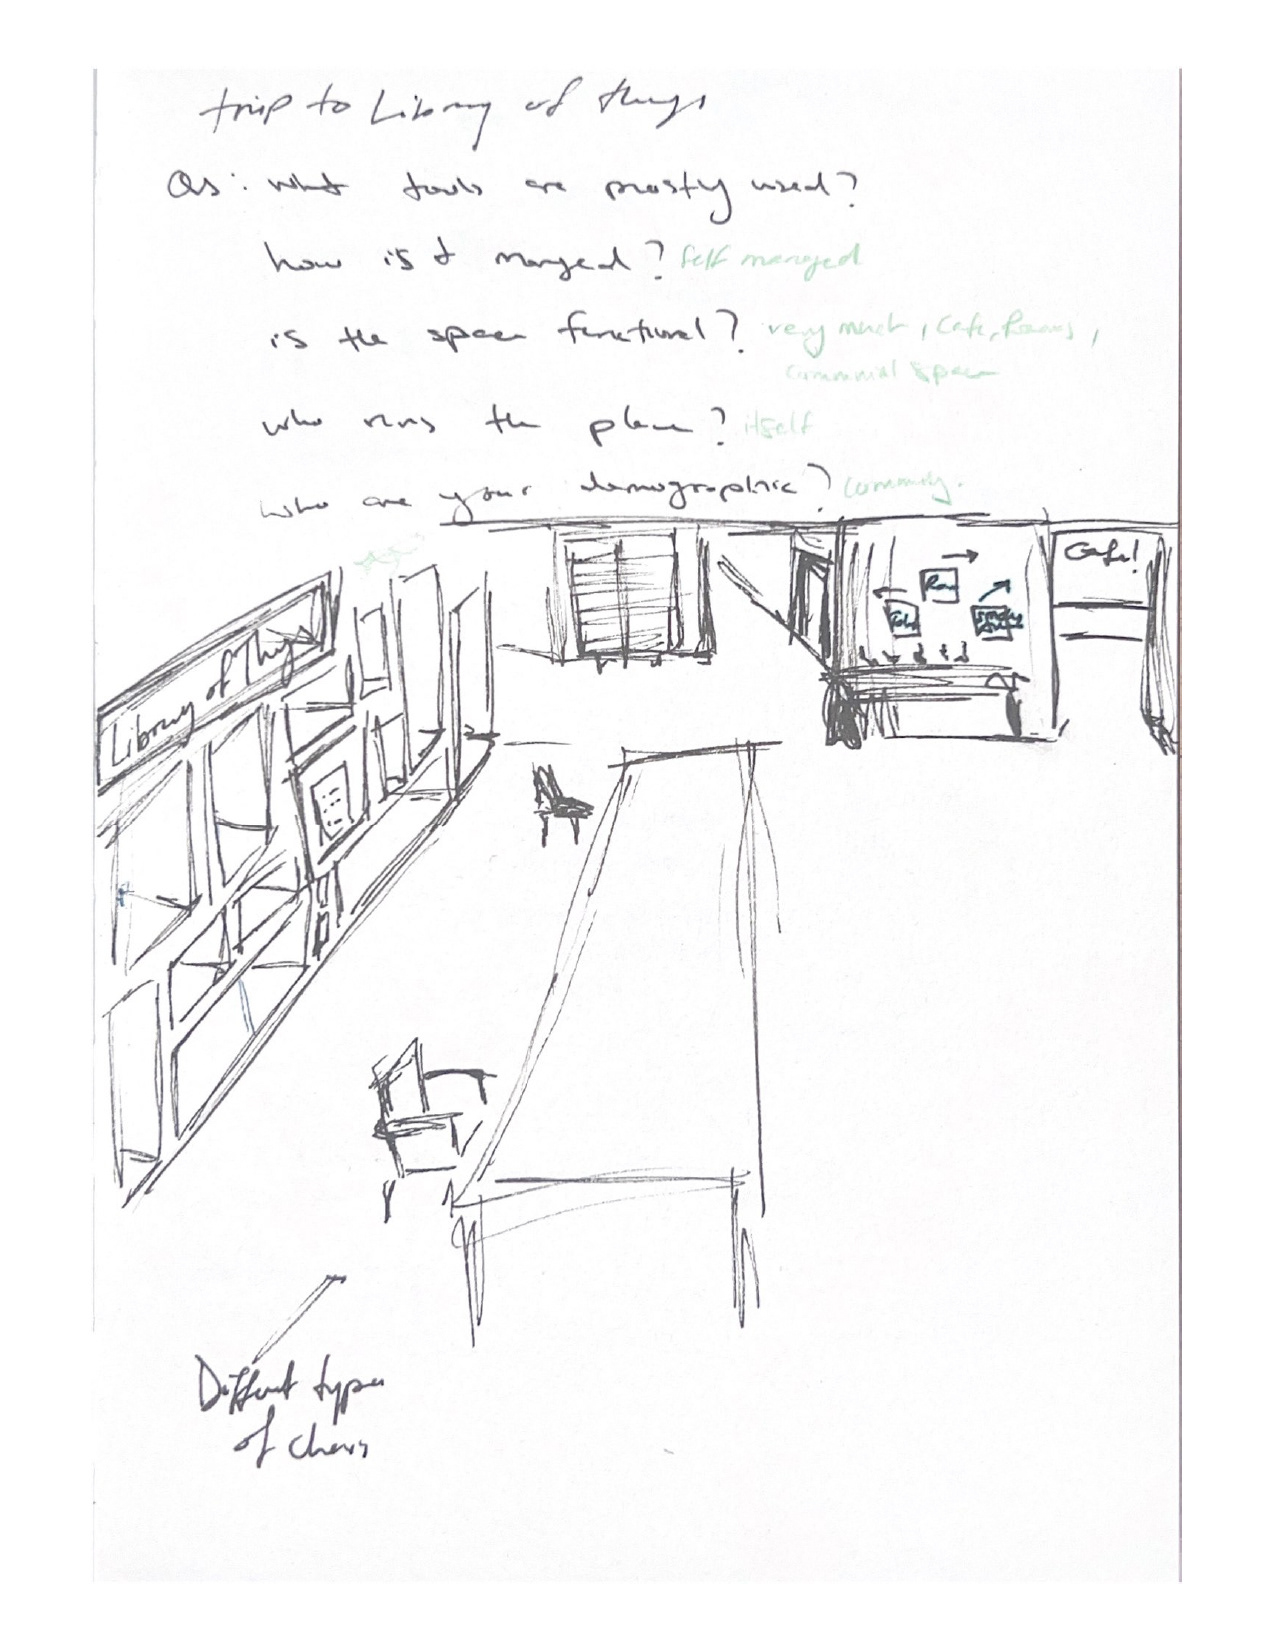 trip to Library of things
Qs: what tools are mostly used?
how is it managed? self managed
is the space functional? very much, Cafe, Rooms,
communal space
who runs the place? itself
who are your demographic? community.
Cafe!
Library of Things
Different types
of chairs